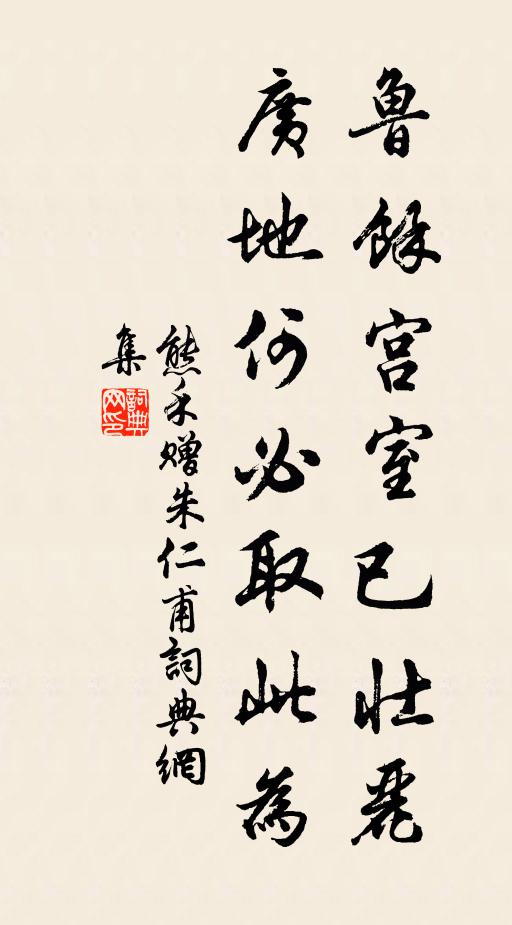 魯餘宮室已壯麗
廣地何必取此為
熊禾贈朱仁甫詞典網
集
詞典
网印